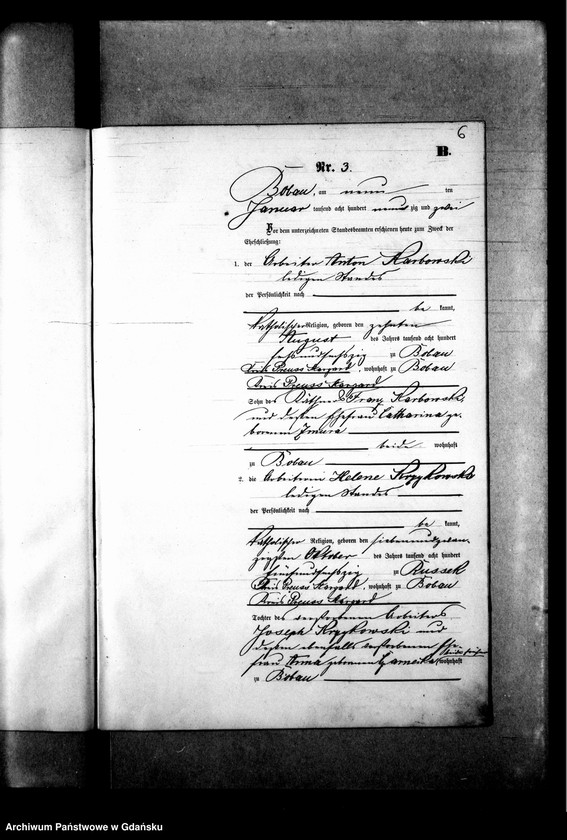 6
B.
Nr. 3.
Bobau, am neun ten
Januar tausend acht hundert neun zig und zwei
Vor dem unterzeichneten Standesbeamten erschienen heute zum Zweck der
Eheschließung:
1. der Arbeiter Anton Karbowski
ledigen Standes
der Persönlichkeit nach
be kannt,
katholischer Religion, geboren den zehnten
August des Jahres tausend acht hundert
sechsundsechszig zu Bobau
Kreis Preuss Stargard, wohnhaft zu Bobau
Kreis Preuss Stargard
Sohn des Käthners Franz Karborwski
und dessen Ehefrau Catharina ge-
borenen
beide wohnhaft
zu Bobau
2. die Arbeiterin Helene Krzykowski
ledigen Standes
der Persönlichkeit nach
be kannt,
katholischer Religion, geboren den siebenundzwan-
zigsten Oktober des Jahres tausend acht hundert
fünfundsechszig zu Russek
Kreis Preuss Stargard, wohnhaft zu Bobau
Kreis Preuss Stargard
Tochter des verstorbenen Arbeiters
Joseph Krzykowski und
dessen ebenfalls verstorbenen Ehe-
frau Anna geborenen wohnhaft
zu Bobau
Archiwum Państwowe w Gdańsku